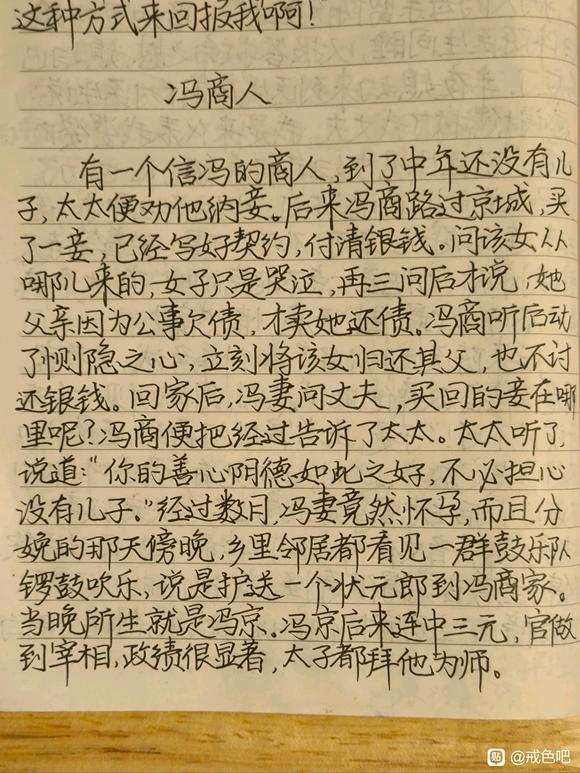 这种方式来回报我啊!
冯商人
有一个信冯的商人,到了中年还没有儿
子,太太便劝他纳妾。后来冯商路过京城,买
了一妾,已经写好契约,付请银钱。问该女从
哪儿来的,女子只是哭泣,再三问后才说,她
父亲因为公事欠债,才卖她还债。冯商听后动
了恻隐之心,立刻将该女归还其父,也不讨
还银钱。回家后,冯妻问丈夫,买回的妾在哪
里呢?冯商便把经过告诉了太太。太太听了,
说道:“你的善心阴德如此之好,不必担心
没有儿子。”经过数月,冯妻竟然怀孕,而且分
娩的那天傍晚,乡里邻居都看见一群鼓乐队
锣鼓吹乐,说是护送一个状元郎到冯商家。
当晚所生就是冯京。冯京后来连中三元,官做
到宰相,政绩很显著,太子都拜他为师。
贴 @戒色吧